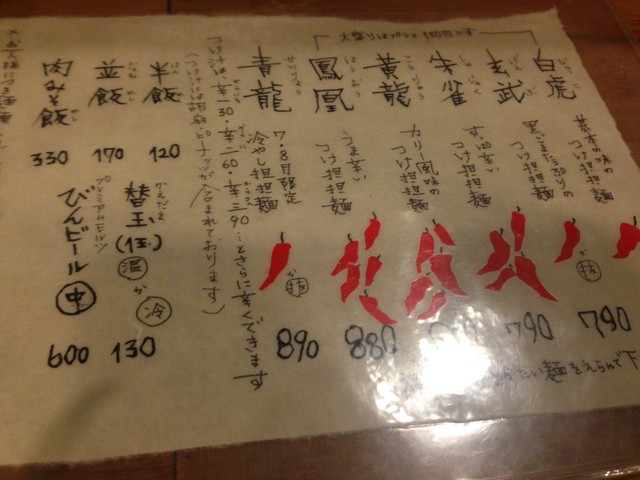 大盛りは
です
白虎
びゃっこ
基本の味の
つけ担担麺
か
抜
790
玄武
げんぶ
黒ごまたっぷりの
つけ担担麺
790
朱雀
すじゃく
すっぱ辛い
つけ担担麺
黄龍
こうりゅう
カリー風味の
つけ担担麺
鳳凰
ほうおう
うま辛い
つけ担担麺
880
青龍
せいりゅう
7・8月限定
冷やし担担麺
か
抜
890
麺をえらんで下
つけ汁は、辛一30・辛二60・辛三90…とさらに辛くできます
(つけ汁には胡麻・ピーナッツが含まれております)
半飯
はん
120
並飯
170
肉みそ飯
330
かえだま
替玉(1玉)
温か冷
130
プレミアムモルツ
びんビール
中
600